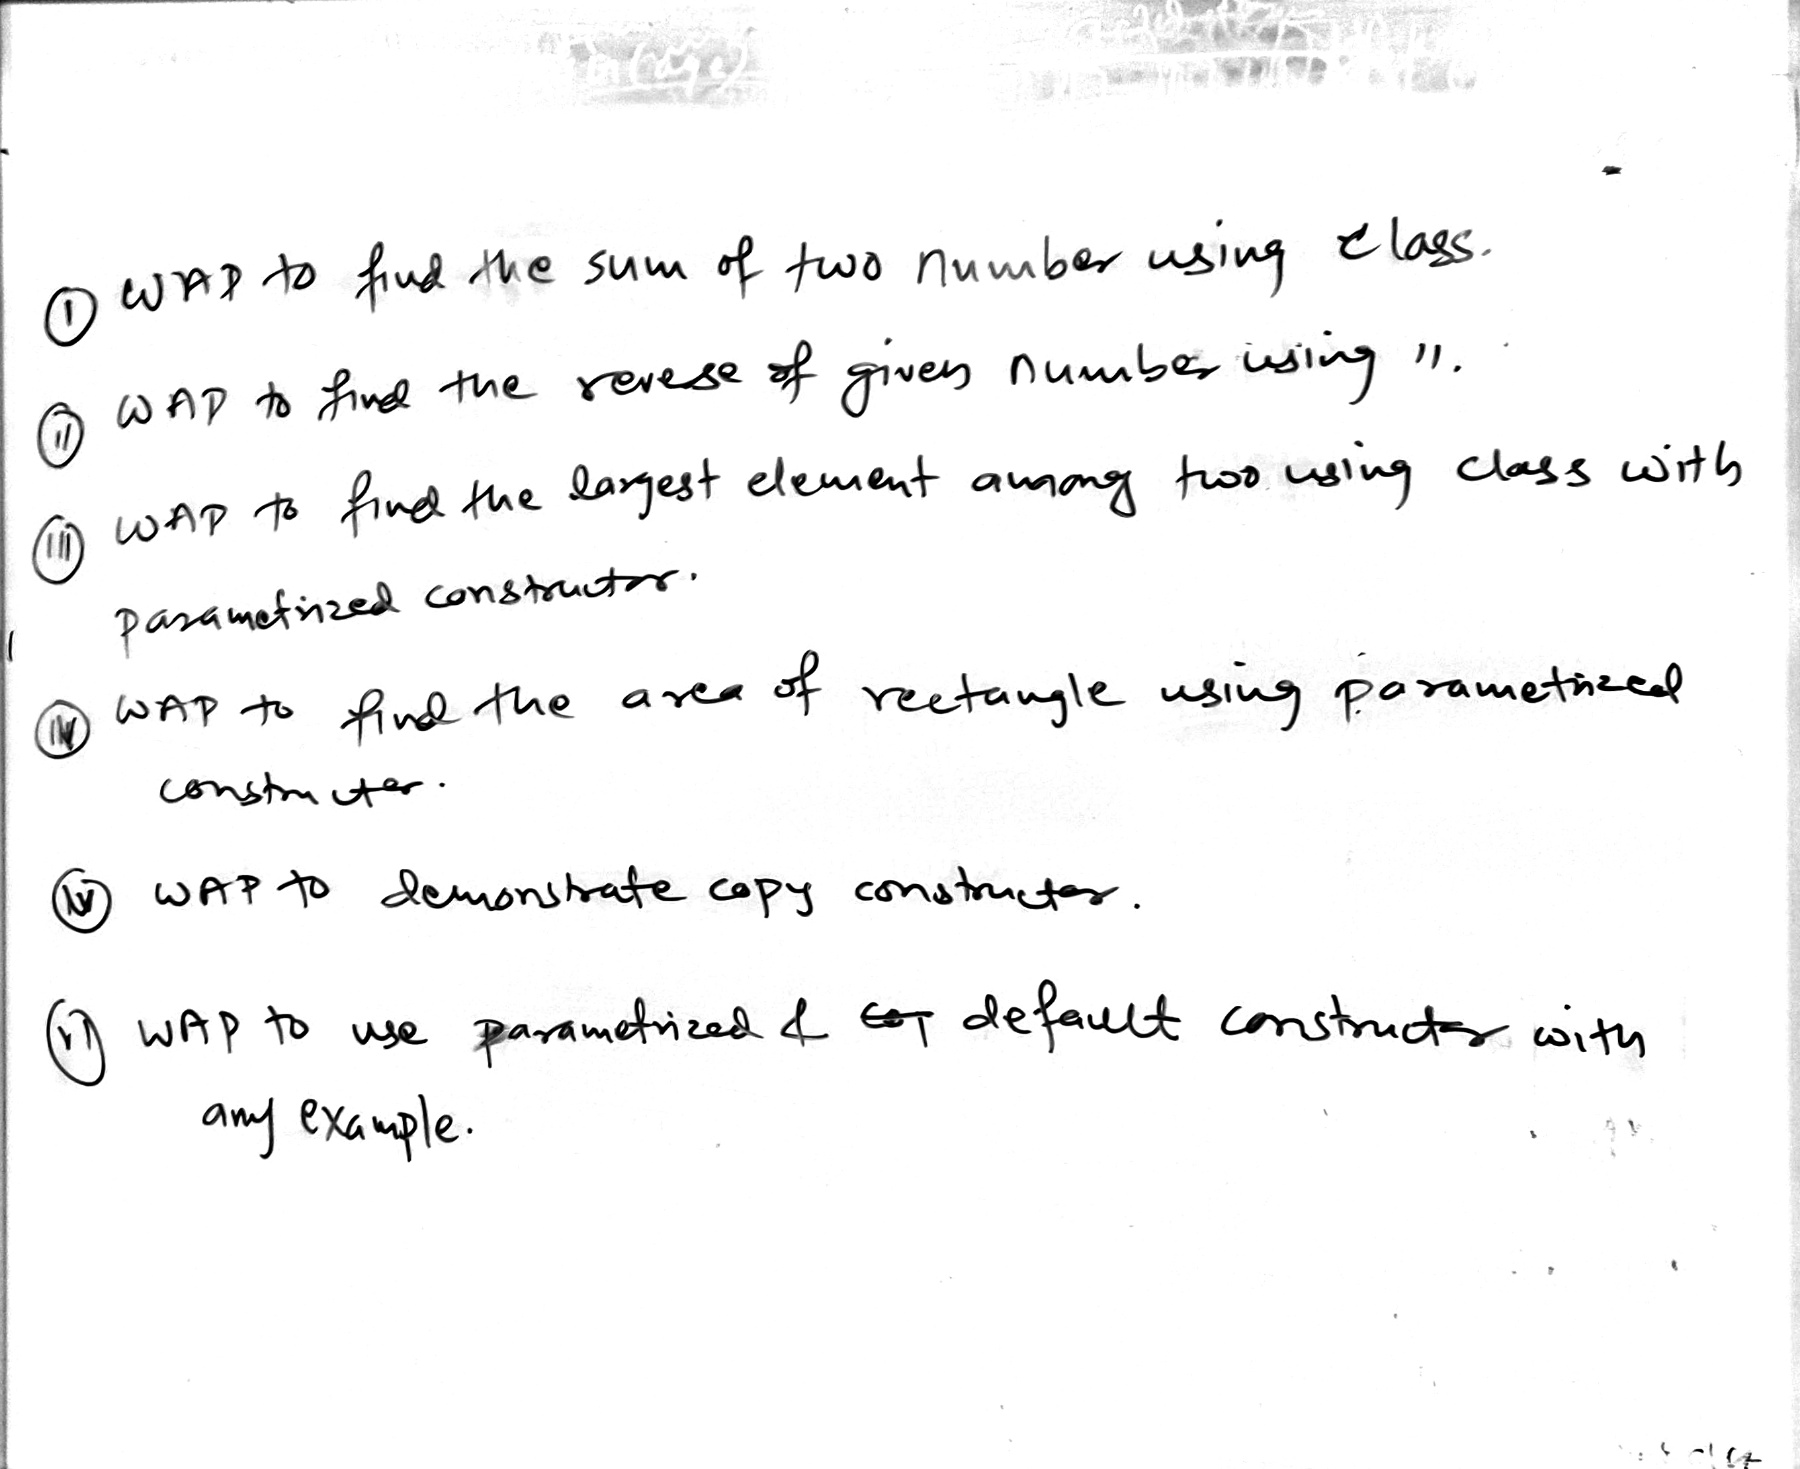 ① WAP to find the sum of two number using class.
ⅱ WAP to find the reverse of given number using ".
ⅲ WAP to find the largest element among two using class with
parametrized constructor.
ⅳ WAP to find the area of rectangle using parametrized
constructor.
ⅳ WAP to demonstrate copy constructor.
ⅵ WAP to use parametrized & default constructor with
any example.